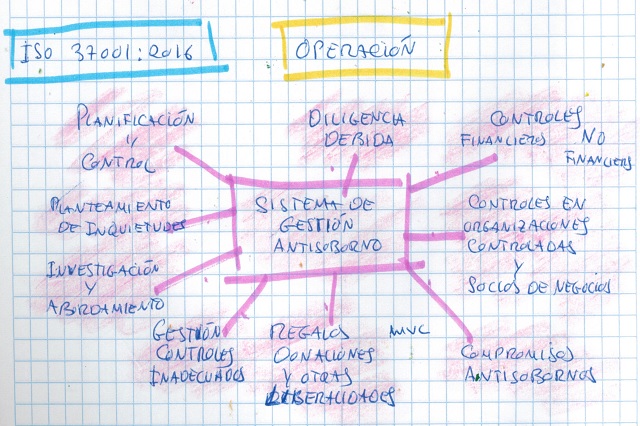 ISO 37001:2016
OPERACIÓN
PLANIFICACIÓN
Y
CONTROL
DILIGENCIA
DEBIDA
CONTROLES
FINANCIEROS NO
FINANCIEROS
PLANTEAMIENTO
DE INQUIETUDES
SISTEMA DE
GESTIÓN
ANTISOBORNO
CONTROLES EN
ORGANIZACIONES
CONTROLADAS
Y
SOCIOS DE NEGOCIOS
INVESTIGACIÓN
Y
ABORDAMIENTO
GESTIÓN
CONTROLES
INADECUADOS
REGALOS
DONACIONES
Y OTRAS
LIBERALIDADES
MVC
COMPROMISOS
ANTISOBORNOS